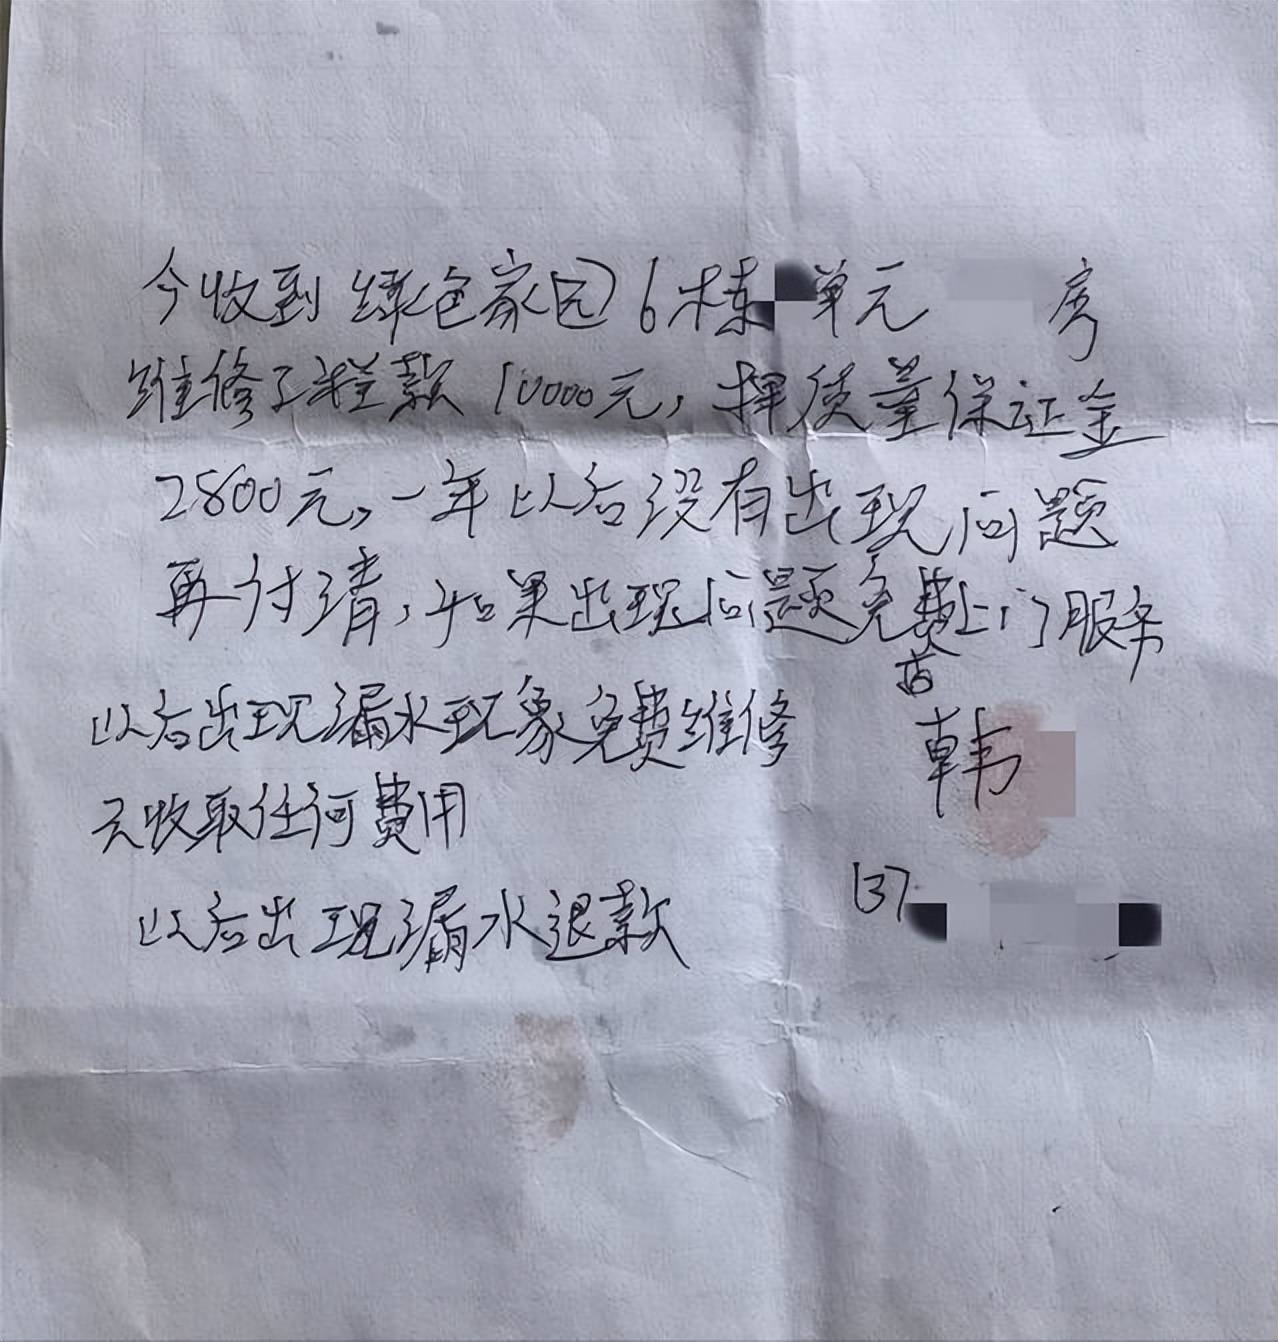 今收到绿色家园6栋 单元 房
维修工程款10000元，押质量保证金
2800元，一年以后没有出现问题
再付清，如果出现问题免费上门服务
以后出现漏水现象免费维修
不收取任何费用
以后出现漏水退款
韩
137